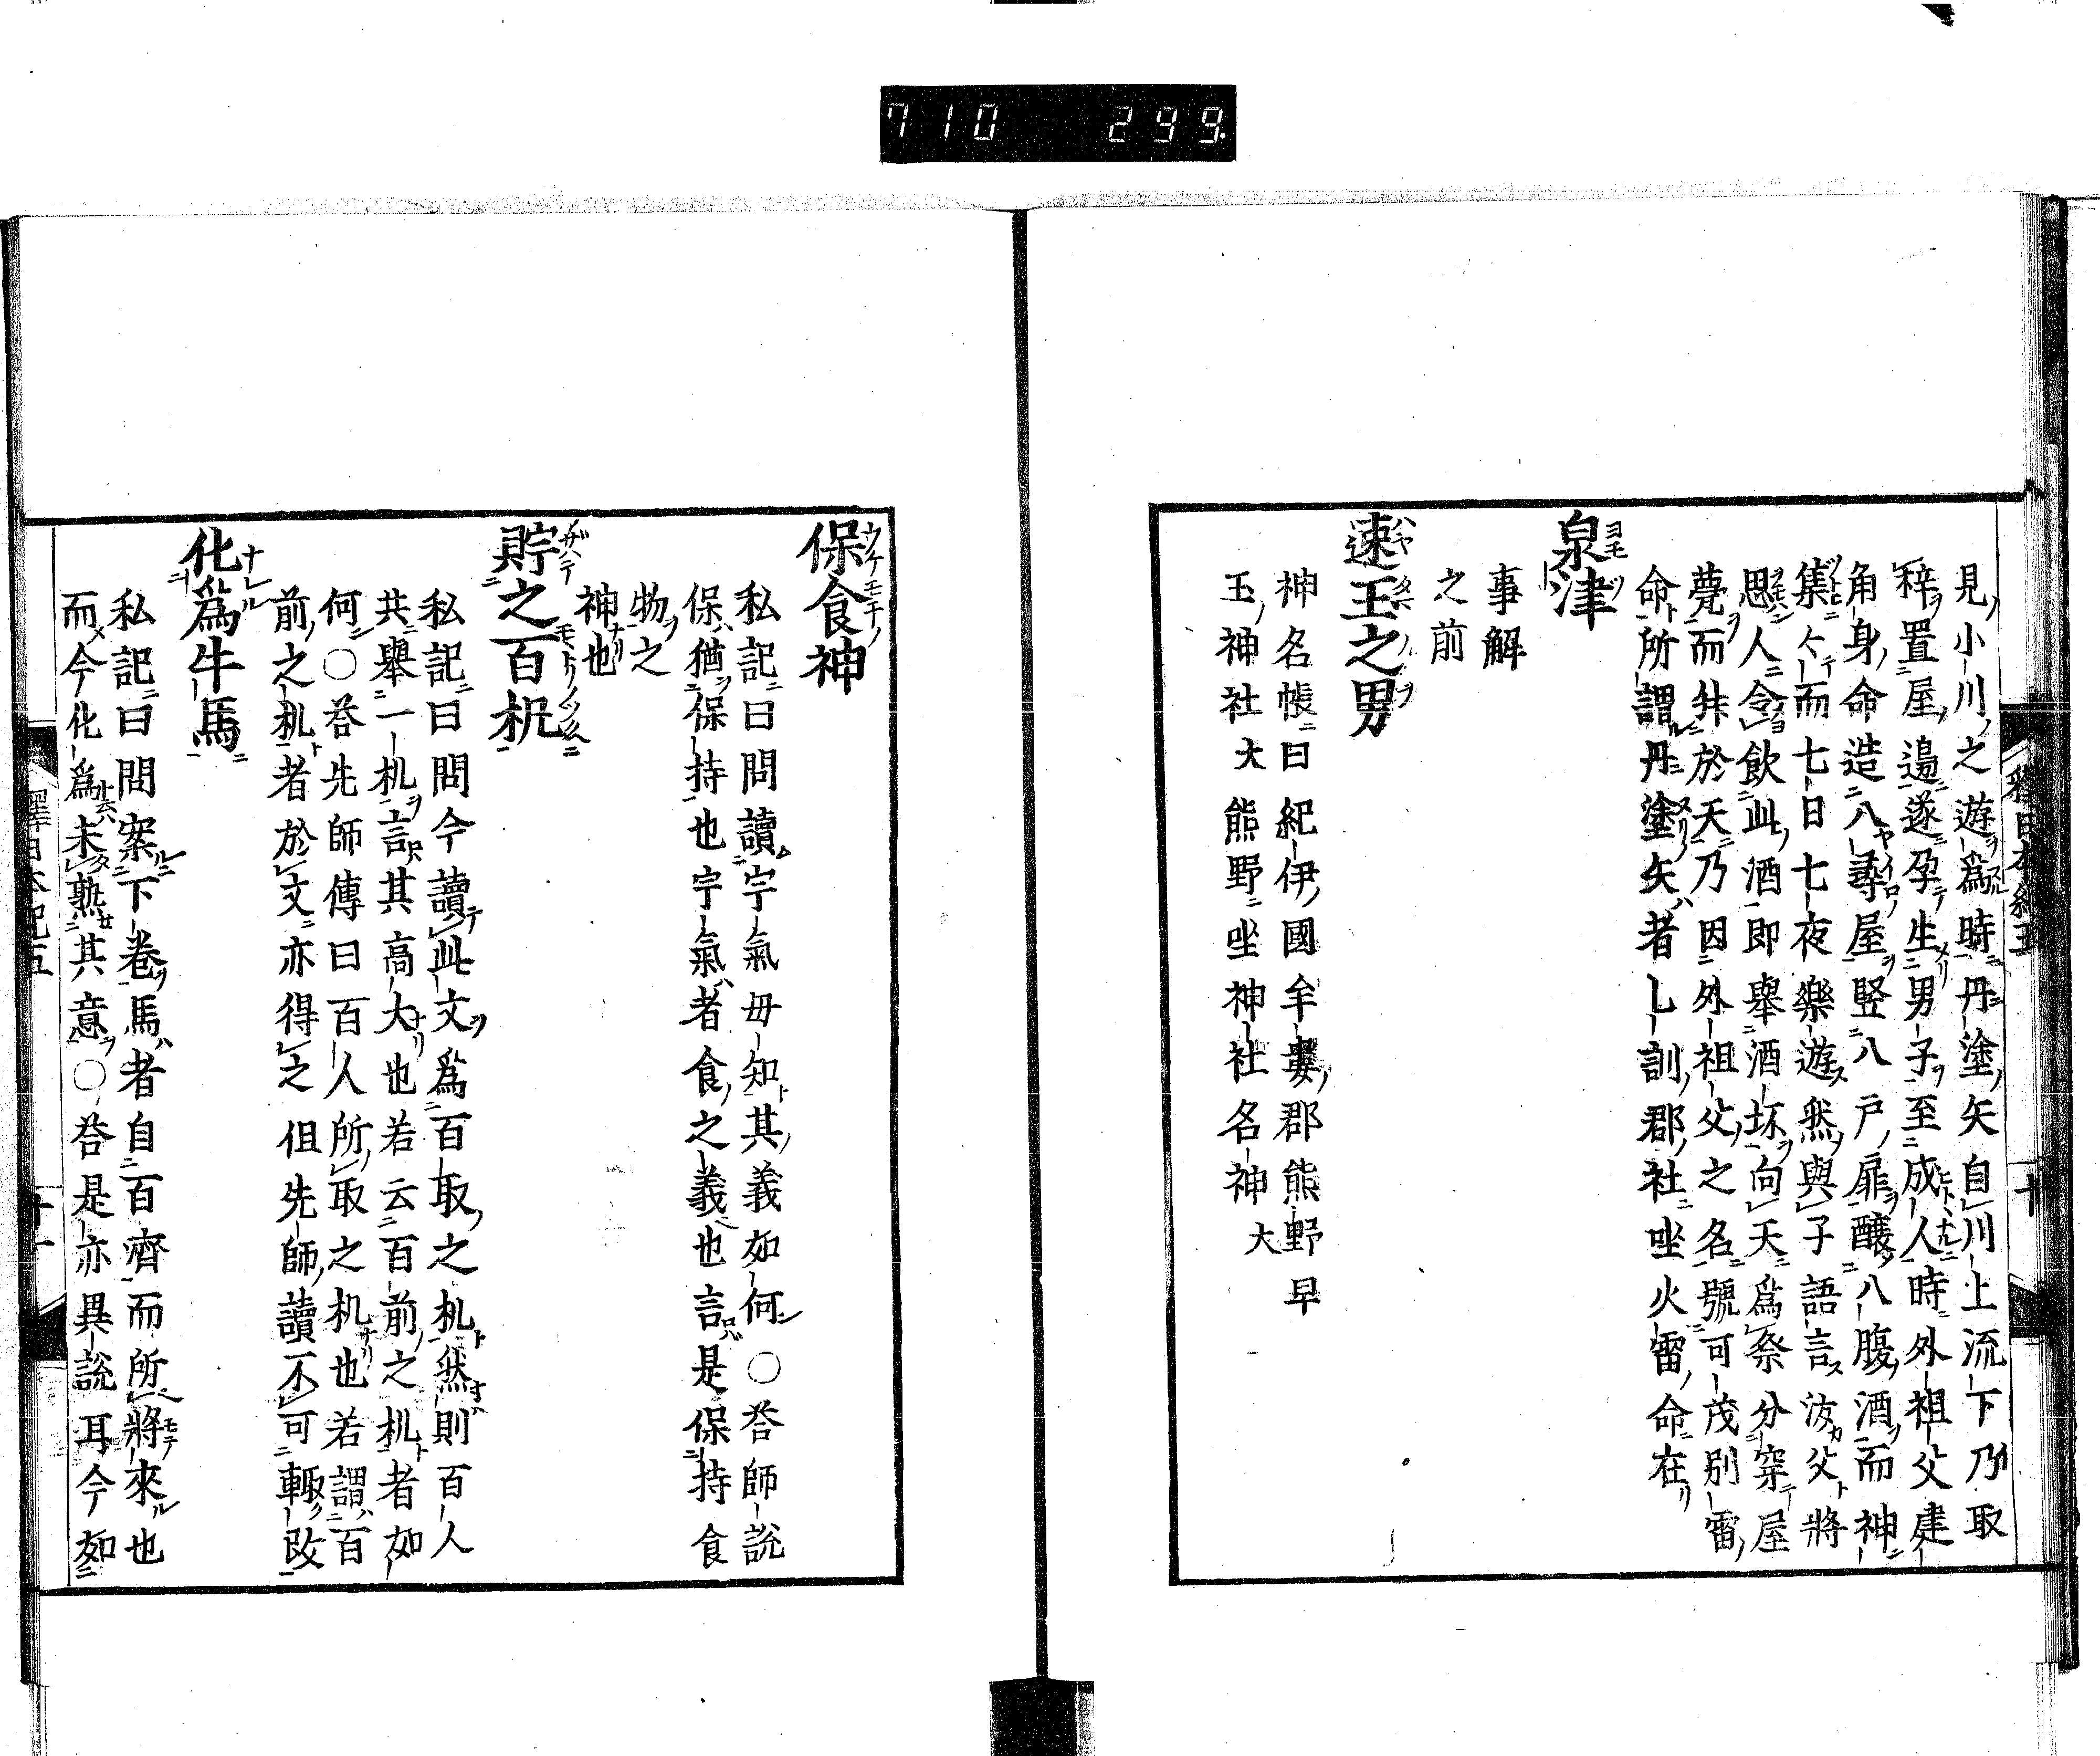 710 299
見小川之遊爲時丹塗矢自川上流下乃取
置屋邉遂孕生男子至成人時外祖父建
角身命造八尋屋竪八戸扉醸八腹酒而神
集々而七日七夜樂遊然與子語言汝父將
思人令飲此酒即舉酒坏向天爲祭分穿屋
甍而舛於天乃因外祖父之名號可茂別雷
命所謂丹塗矢者乙訓郡社坐火雷命在
泉津
事解
之前
速玉之男
神名帳曰紀伊國牟婁郡熊野早
玉神社大熊野坐神社名神大
釋日本紀五
十
保食神
私記曰問讀宇氣毋知其義如何○荅師說
保猶保持也宇氣者食之義也言是保持食
物之
神也
貯之百机
私記曰問今讀此文爲百取之机然則百人
共舉一机言其高大也若云百前之机者如
何○荅先師傳曰百人所取之机也若謂百
前之机者於文亦得之但先師讀不可輙改
化爲牛馬
私記曰問案下卷馬者自百齊而所將來也
而今化爲未熟其意○荅是亦異說耳今如
釋日本紀五
十一